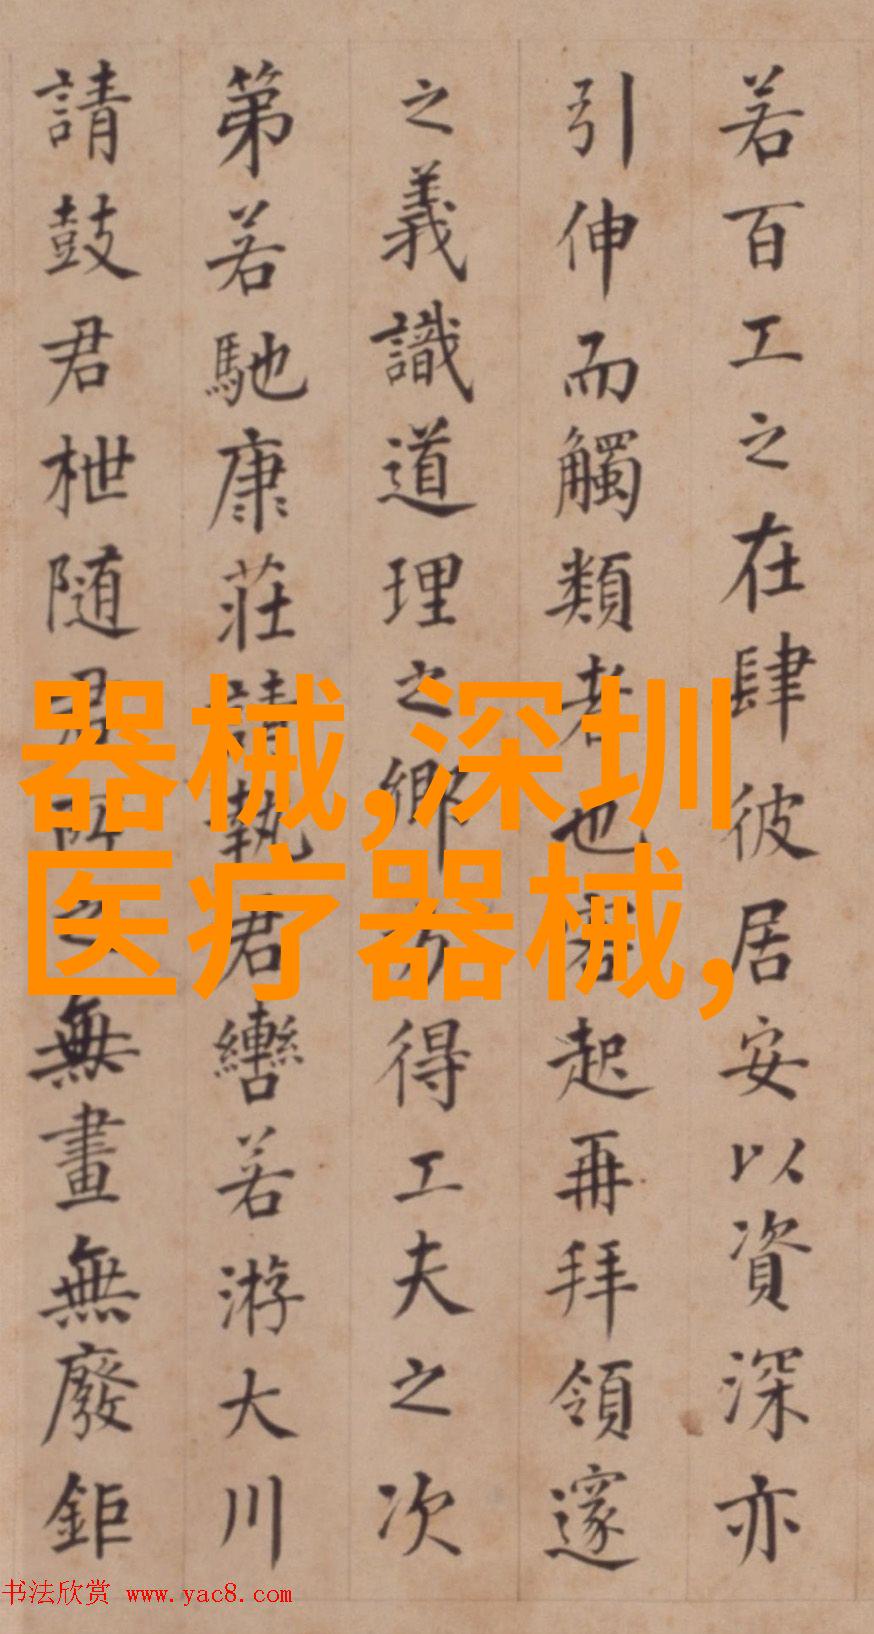 若百工之在肆彼居安以資深亦
引伸而觸類者也若起再拜領邃
之義識道理之鄉方得工夫之次
第若馳康莊請執君轡若游大川
請鼓君枻随君所之無畫無廢鉅
器械,深圳
医疗器械,
书法欣赏 www.yac8.com